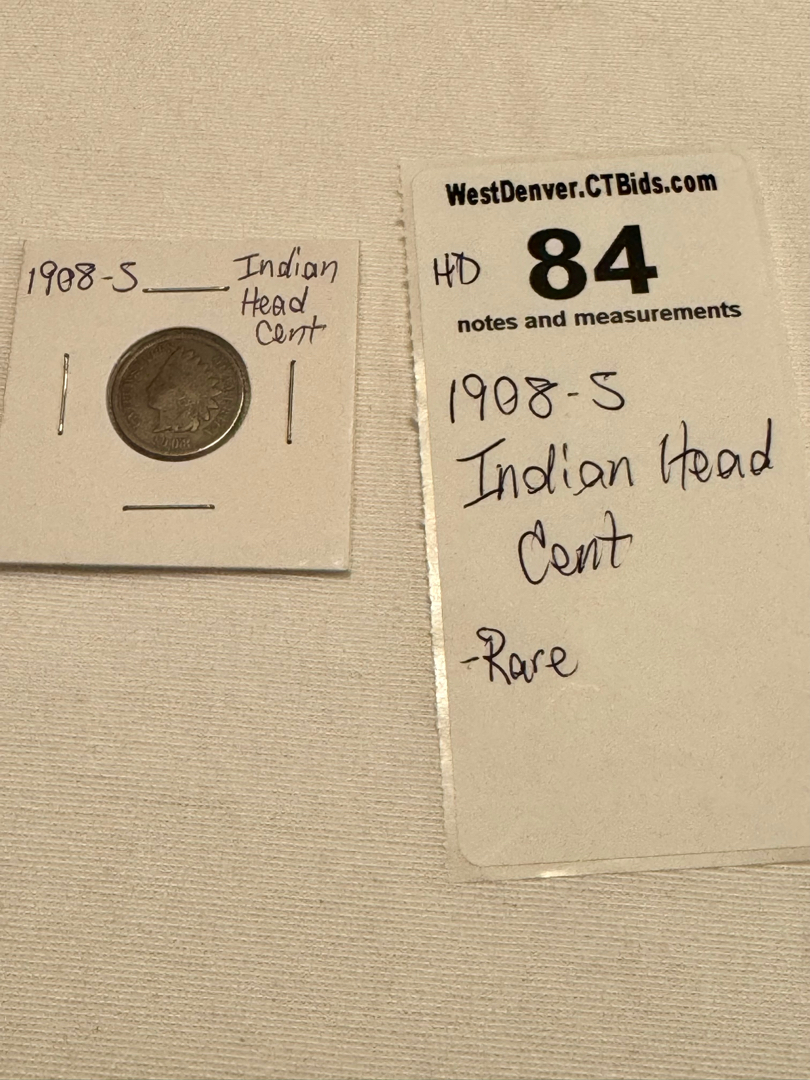 1908-S
Indian
Head
Cent
WestDenver.CTBids.com
HD 84
notes and measurements
1908-S
Indian Head
Cent
-Rare